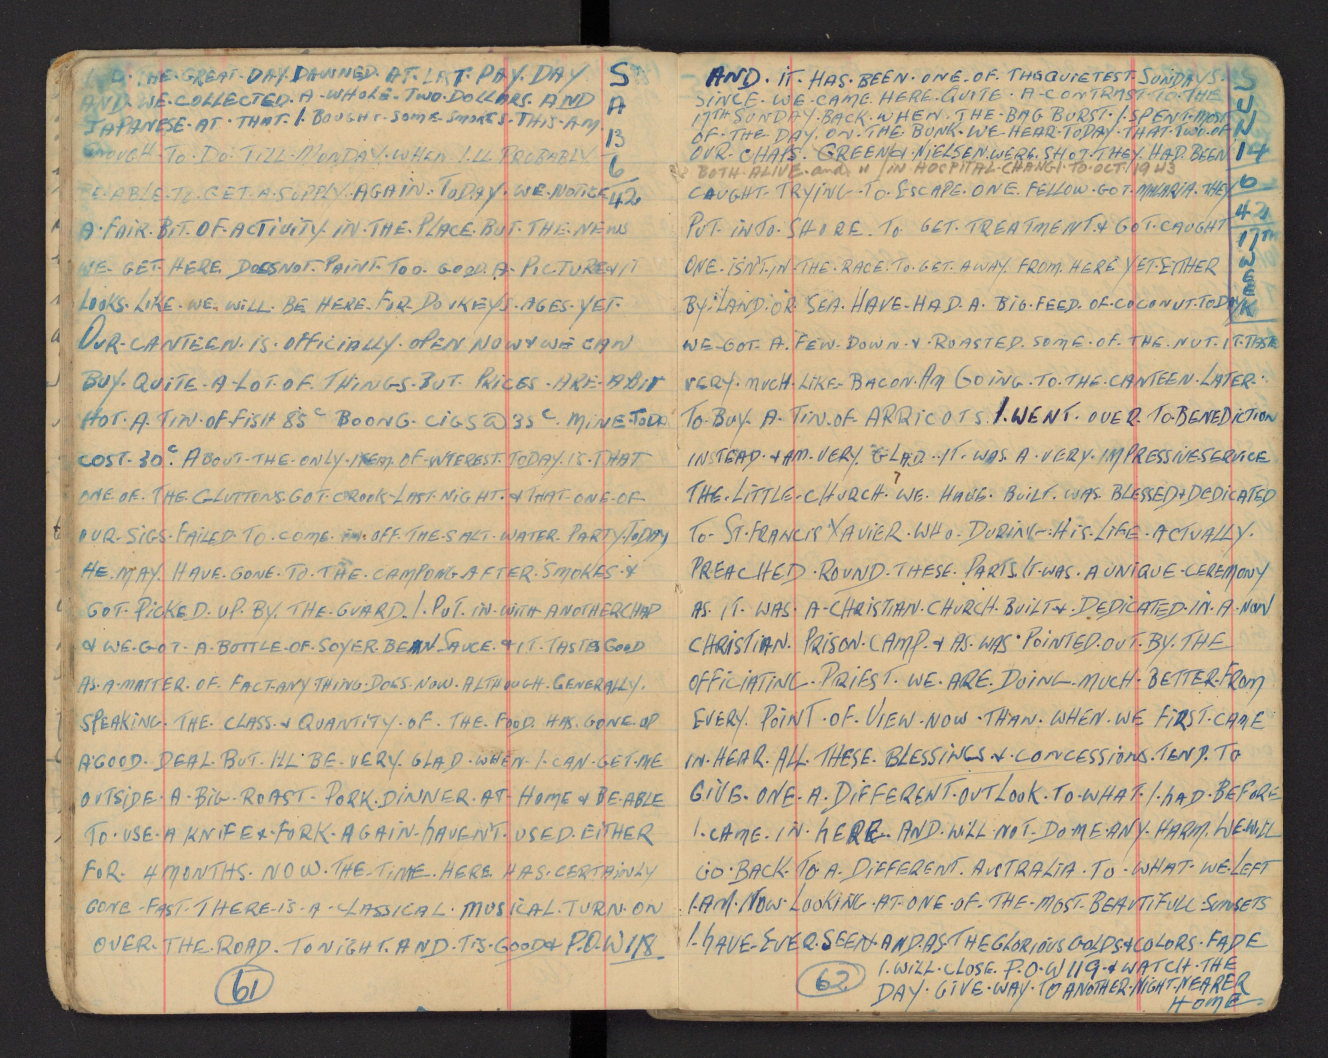 THE GREAT DAY DAWNED. AT LAST PAY DAY
AND WE COLLECTED. A WHOLE. TWO. DOLLARS. AND
JAPANESE. AT. THAT. I. BOUGHT. SOME. SMOKES. THIS. AM
ENOUGH. TO. DO. TILL. MONDAY. WHEN I.LL PROBABLY
BE. ABLE. TO. GET. A. SUPPLY. AGAIN. TODAY. WE. NOTICE
S
A
13
6
42
A. FAIR. BIT. OF. ACTIVITY. IN. THE. PLACE. BUT. THE. NEWS
WE. GET. HERE. DOES NOT. PAINT. TOO. GOOD. A. PICTURE & IT
LOOKS. LIKE. WE. WILL. BE HERE. FOR. DONKEYS. AGES. YET.
OUR. CANTEEN. IS. OFFICIALLY. OPEN NOW & WE CAN
BUY. QUITE. A. LOT. OF. THINGS. BUT. PRICES. ARE. A BIT
HOT. A. TIN. OF. FISH 85c BOONG. CIGS @ 35c. MINE. TODAY
COST. 30c. ABOUT. THE. ONLY. ITEM. OF. INTEREST. TODAY. IS. THAT
ONE OF. THE. GLUTTONS. GOT. CROOK. LAST. NIGHT. & THAT. ONE. OF
OUR. SIGS. FAILED. TO. COME. IN. OFF. THE. SALT. WATER. PARTY. TODAY
HE. MAY. HAVE. GONE. TO. THE. CAMPONG. AFTER. SMOKES. &
GOT. PICKED. UP. BY. THE. GUARD. I. PUT. IN. WITH. ANOTHER CHAP
& WE. GOT. A. BOTTLE. OF. SOYER. BEAN. SAUCE. & IT. TASTES GOOD
AS. A. MATTER. OF. FACT. ANY THING. DOES. NOW. ALTHOUGH. GENERALLY.
SPEAKING. THE. CLASS. & QUANTITY. OF. THE. FOOD. HAS. GONE. UP
A. GOOD. DEAL. BUT. I'LL. BE. VERY. GLAD. WHEN. I. CAN. GET. ME
OUTSIDE. A. BIG. ROAST. PORK. DINNER. AT. HOME & BE. ABLE
TO. USE. A KNIFE & FORK. AGAIN. HAVEN'T. USED. EITHER
FOR. 4 MONTHS. NOW. THE. TIME. HERE. HAS. CERTAINLY
GONE. FAST. THERE. IS. A. CLASSICAL. MUSICAL. TURN. ON
OVER. THE. ROAD. TONIGHT. AND. TIS. GOOD & P.O.W 118
61
AND. IT. HAS. BEEN. ONE. OF. THE QUIETEST. SUNDAYS.
SINCE. WE. CAME. HERE. QUITE. A CONTRAST. TO. THE
17TH SUNDAY. BACK. WHEN. THE. BAG BURST. I. SPENT. MOST
OF. THE. DAY. ON. THE. BUNK. WE. HEAR. TODAY. THAT. TWO. OF
OUR. CHAPS. GREEN & NIELSEN. WERE. SHOT. THEY. HAD. BEEN
BOTH. ALIVE. and " IN HOSPITAL. CHANGI. TO. OCT. 1943
CAUGHT. TRYING. TO. ESCAPE. ONE. FELLOW. GOT. MALARIA. THEY
S
U
N
14
6
42
17TH
W
E
E
K
PUT. INTO. SHORE. TO GET. TREATMENT. & GOT. CAUGHT
ONE. ISN'T. IN. THE. RACE. TO. GET. AWAY. FROM. HERE YET. EITHER
BY. LAND. OR SEA. HAVE. HAD. A. BIG. FEED. OF. COCONUT. TODAY
WE. GOT. A. FEW. DOWN. & ROASTED. SOME. OF. THE. NUT. IT. TASTE
VERY. MUCH. LIKE. BACON. AM GOING. TO. THE. CANTEEN. LATER.
TO. BUY. A. TIN. OF ARRICOTS. I. WENT. OVER. TO. BENEDICTION
INSTEAD. & AM. VERY. GLAD. IT. WAS. A. VERY. IMPRESSIVE SERVICE
THE. LITTLE. CHURCH. WE. HAVE. BUILT. WAS. BLESSED & DEDICATED
TO. ST. FRANCIS XAVIER. WHO. DURING. HIS. LIFE. ACTUALLY.
PREACHED. ROUND. THESE. PARTS. IT. WAS. A UNIQUE. CEREMONY
AS. IT. WAS. A. CHRISTIAN. CHURCH. BUILT. &. DEDICATED. IN. A. NON
CHRISTIAN. PRISON. CAMP. & AS. WAS. POINTED. OUT. BY. THE
OFFICIATING. PRIEST. WE. ARE. DOING. MUCH. BETTER. FROM
EVERY. POINT. OF. VIEW. NOW. THAN. WHEN. WE FIRST. CAME
IN. HEAR. ALL. THESE. BLESSINGS & CONCESSIONS. TEND. TO
GIVE. ONE. A. DIFFERENT. OUTLOOK. TO. WHAT. I. HAD. BEFORE
I. CAME. IN. HERE. AND. WILL. NOT. DO ME. ANY. HARM. WE. WILL
GO. BACK. TO A. DIFFERENT. AUSTRALIA. TO. WHAT. WE. LEFT
I. AM. NOW. LOOKING. AT. ONE. OF. THE. MOST. BEAUTIFULL. SUNSETS
I. HAVE. EVER. SEEN. AND. AS. THE GLORIOUS GOLDS & COLORS. FADE
I. WILL. CLOSE. P.O.W 119. & WATCH. THE
DAY. GIVE. WAY. TO ANOTHER. NIGHT. NEARER
HOME
62